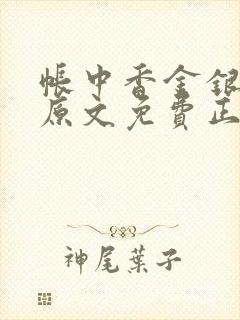 帳中香金銀
原文免費正
神尾葉子